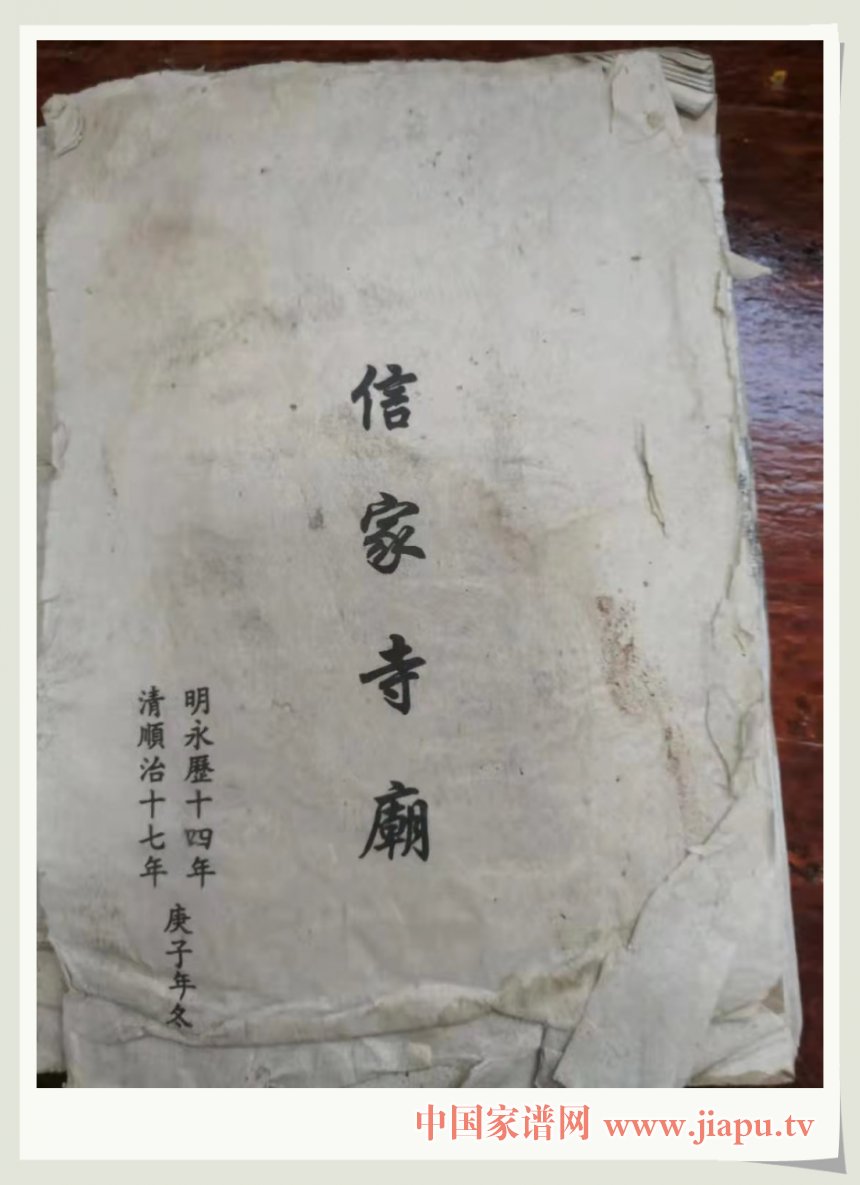 信家寺廟
明永歷十四年
清順治十七年
庚子年冬
中国家谱网 www.jiapu.tv